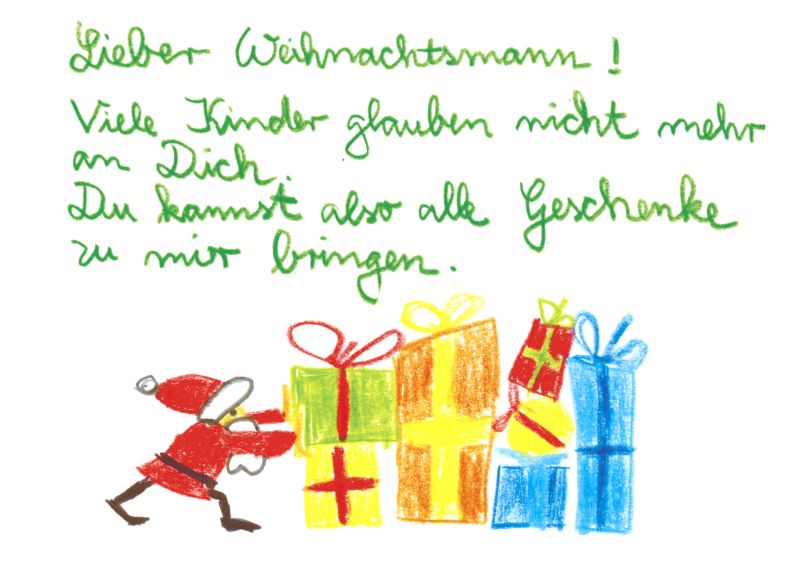 Lieber Weihnachtsmann!
Viele Kinder glauben nicht mehr
an Dich.
Du kannst also alle Geschenke
zu mir bringen.